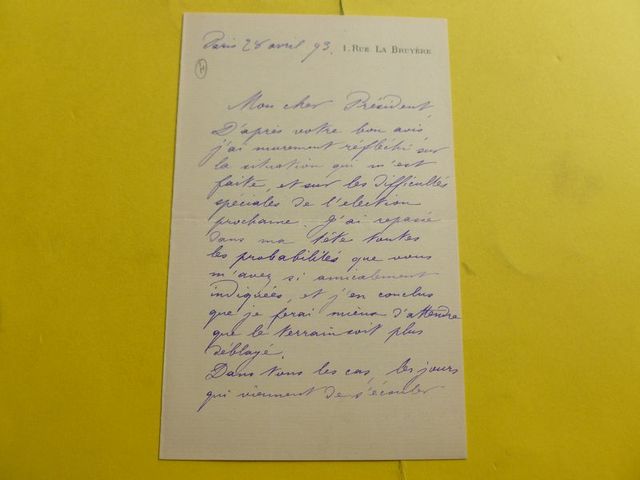 Paris 28 avril 93. 1. RUE LA BRUYÈRE
Mon cher Président
D'après votre bon avis
j'ai murement réfléchi sur
la situation qui m'est
faite, et sur les difficultés
spéciales de l'election
prochaine. J'ai repassé
dans ma tête toutes
les probabilités que vous
m'avez si amicalement
indiquées, et j'en conclus
que je ferai mieux d'attendre
que le terrain soit plus
déblayé.
Dans tous les cas, les jours
qui viennent de s'écouler